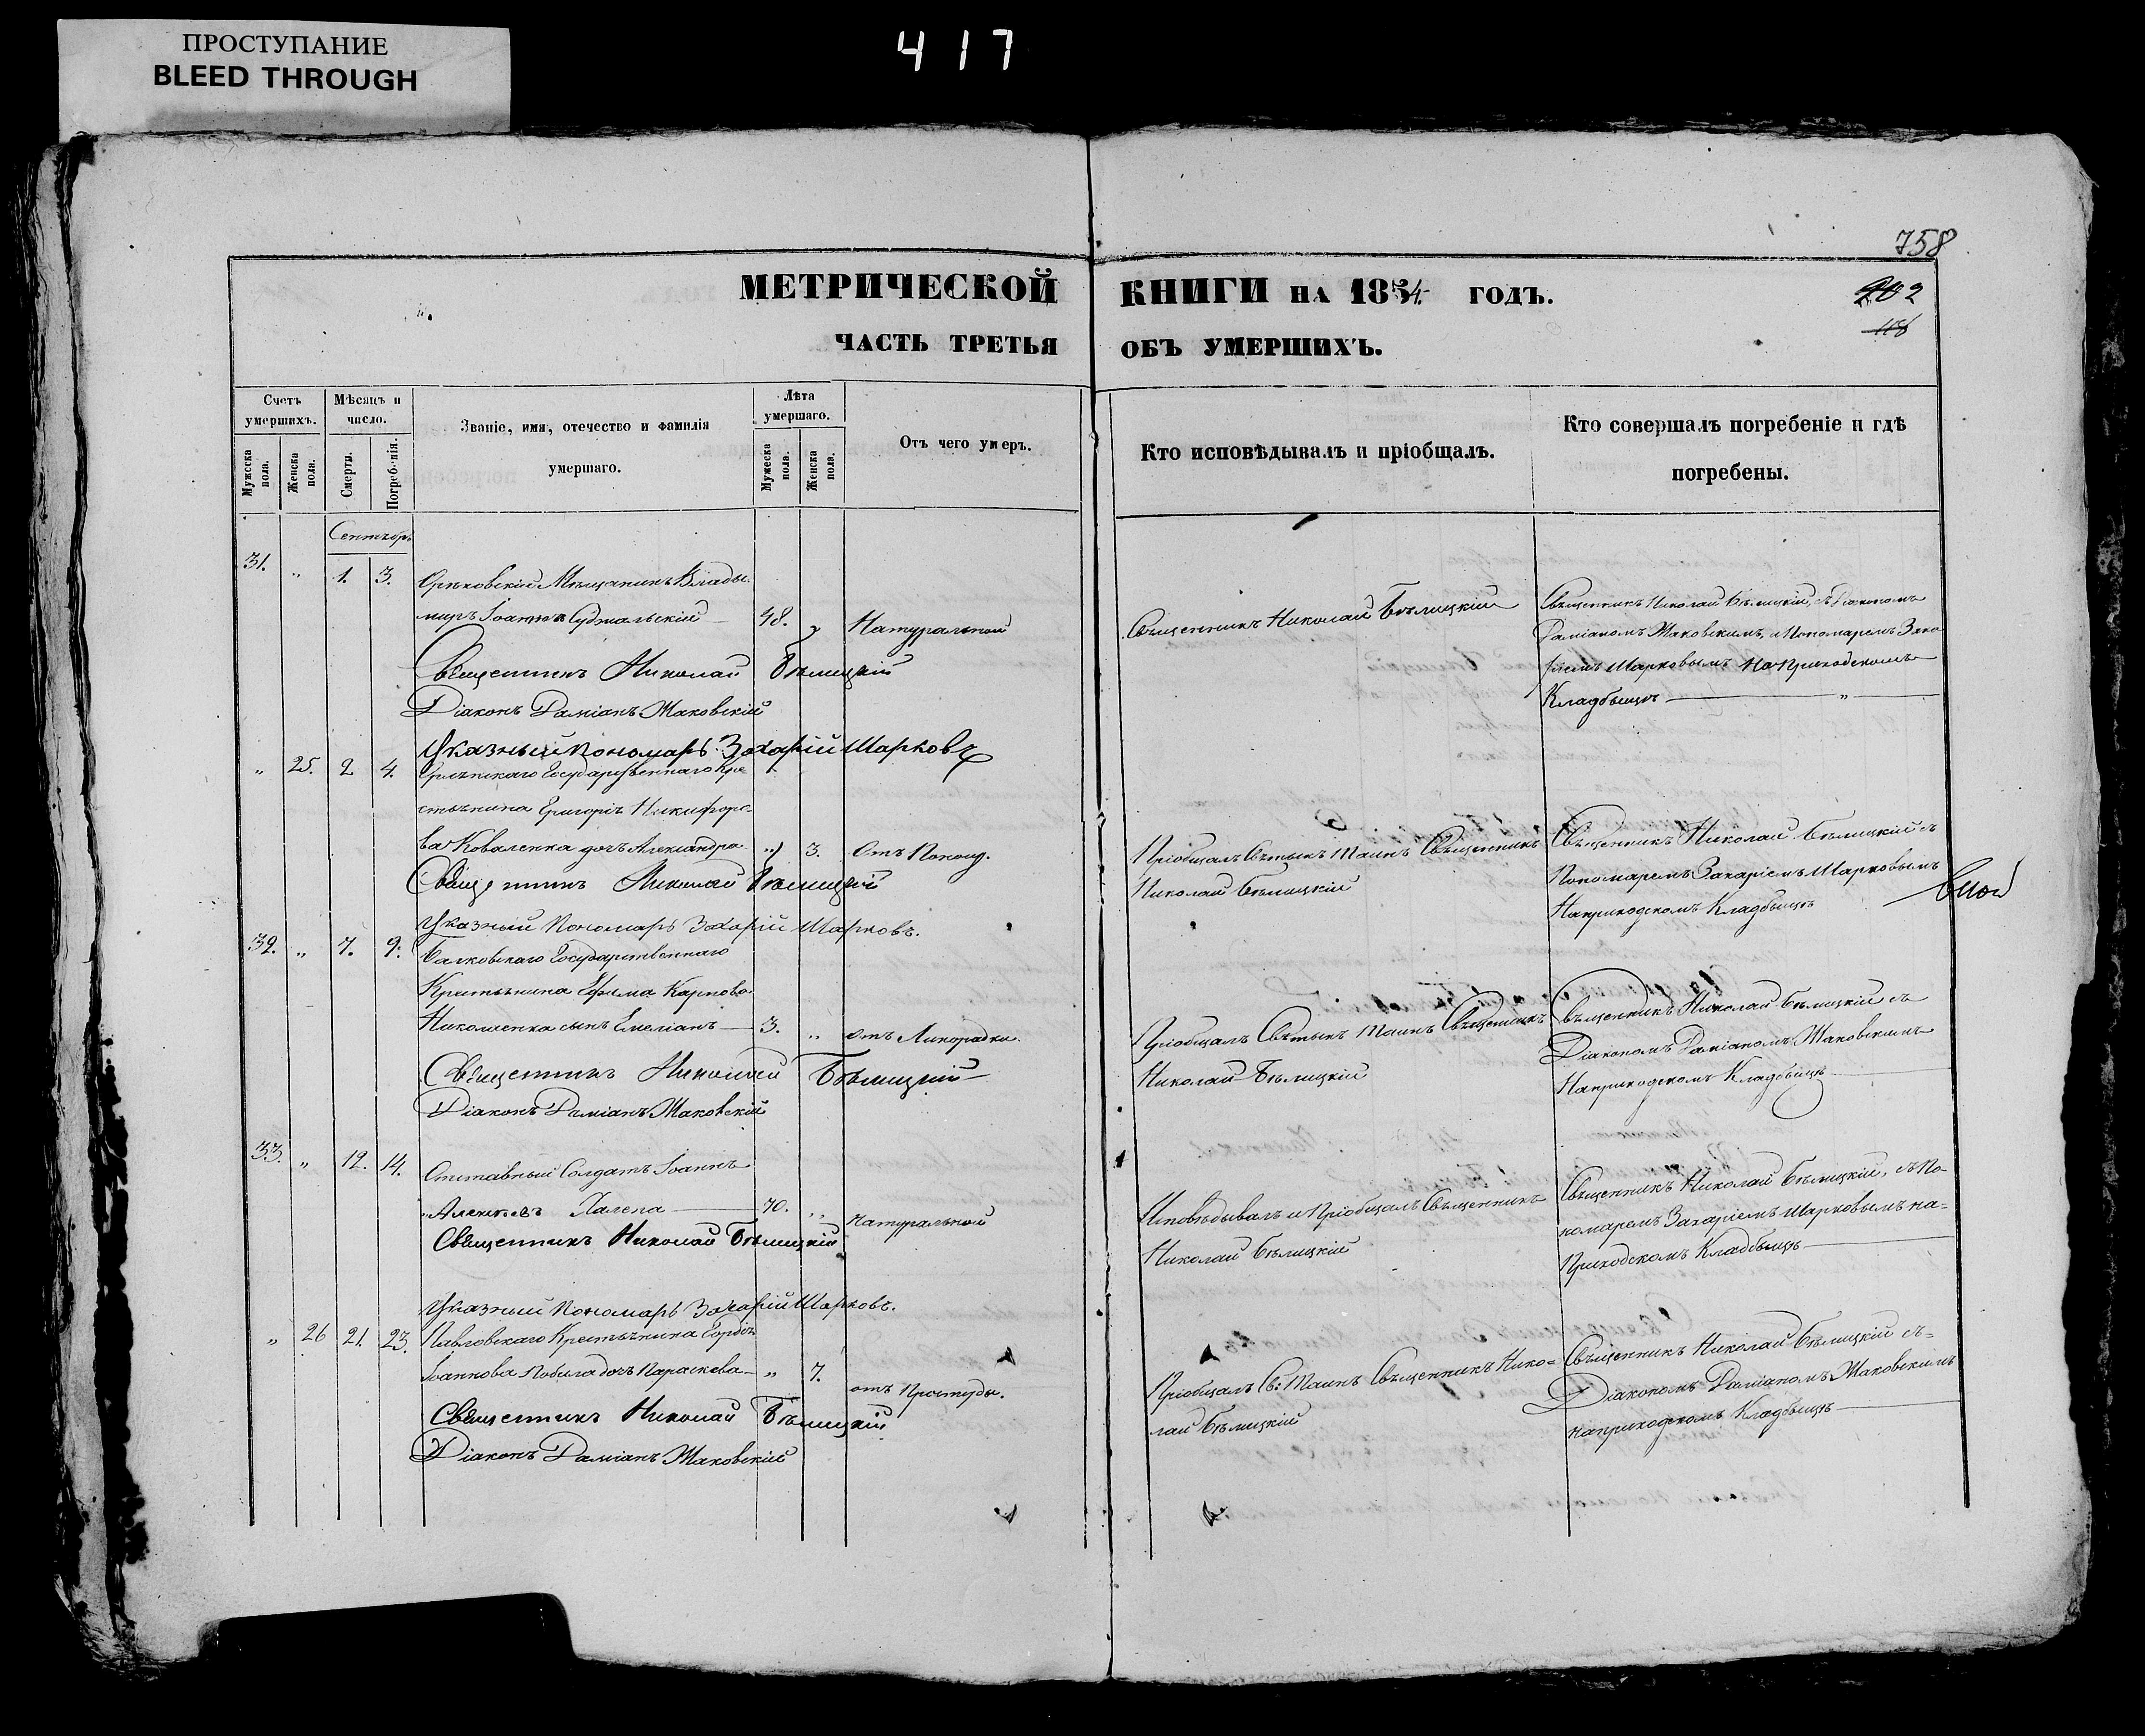 ПРОСТУПАНИЕ
BLEED THROUGH
417
758
МЕТРИЧЕСКОЙ КНИГИ НА 1854 ГОДЪ.
202
118
ЧАСТЬ ТРЕТЬЯ ОБЪ УМЕРШИХЪ.
Счетъ умершихъ.
Мужеска пола.
Женска пола.
Мѣсяцъ и число.
Смерти.
Погребенія.
Званіе, имя, отечество и фамилія умершаго.
Лѣта умершаго.
Мужеска пола.
Женска пола.
Отъ чего умеръ.
Кто исповѣдывалъ и пріобщалъ.
Кто совершалъ погребеніе и гдѣ погребены.
Сентябрь
31. „ 1. 3. Орѣховскій Мѣщанинъ Влады-
миръ Іоаннъ Суджальскій 48. „ Натуральной
Священникъ Николай Бѣлицкій
Діаконъ Даміанъ Маковскій
Указный Пономарь Захарій Шарковъ
Священникъ Николай Бѣлицкій
Священникъ Николай Бѣлицкій, съ Діакономъ
Даміаномъ Маковскимъ, и Пономаремъ Заха-
ріемъ Шарковымъ На Приходскомъ
Кладбищѣ „
„ 25. 2 4. Государственнаго Кре-
стьянина Григорія Никифоро-
ва Коваленка дочь Александра „ 3. Отъ Поноса.
Священникъ Николай Бѣлицкій
Указный Пономарь Захарій Шарковъ.
Пріобщалъ Святыхъ Таинъ Священникъ
Николай Бѣлицкій
Священникъ Николай Бѣлицкій съ
Пономаремъ Захаріемъ Шарковымъ
На приходскомъ Кладбищѣ
32. „ 7. 9. Балковскаго Государственнаго
Крестьянина Ефима Карпова
Николаенка сынъ Емеліанъ 3. „ отъ Лихорадки.
Священникъ Николай Бѣлицкій
Діаконъ Даміанъ Маковскій
Пріобщалъ Святыхъ Таинъ Священникъ
Николай Бѣлицкій
Священникъ Николай Бѣлицкій съ
Діакономъ Даміаномъ Маковскимъ
На приходскомъ Кладбищѣ
33. „ 12. 14. Отставный Солдатъ Іоаннъ
Алексѣевъ Галепа 70. „ натуральной
Священникъ Николай Бѣлицкій
Указный Пономарь Захарій Шарковъ.
Исповѣдывалъ и Пріобщалъ Священникъ
Николай Бѣлицкій
Священникъ Николай Бѣлицкій, съ По-
номаремъ Захаріемъ Шарковымъ на=
Приходскомъ Кладбищѣ
„ 26 21. 23. Павловскаго Крестьянина Гордія
Іоаннова Побила дочь Параскева „ 7. отъ Простуды.
Священникъ Николай Бѣлицкій
Діаконъ Даміанъ Маковскій
Пріобщалъ Св: Таинъ Священникъ Нико=
лай Бѣлицкій
Священникъ Николай Бѣлицкій съ=
Діакономъ Даміаномъ Маковскимъ
на приходскомъ Кладбищѣ